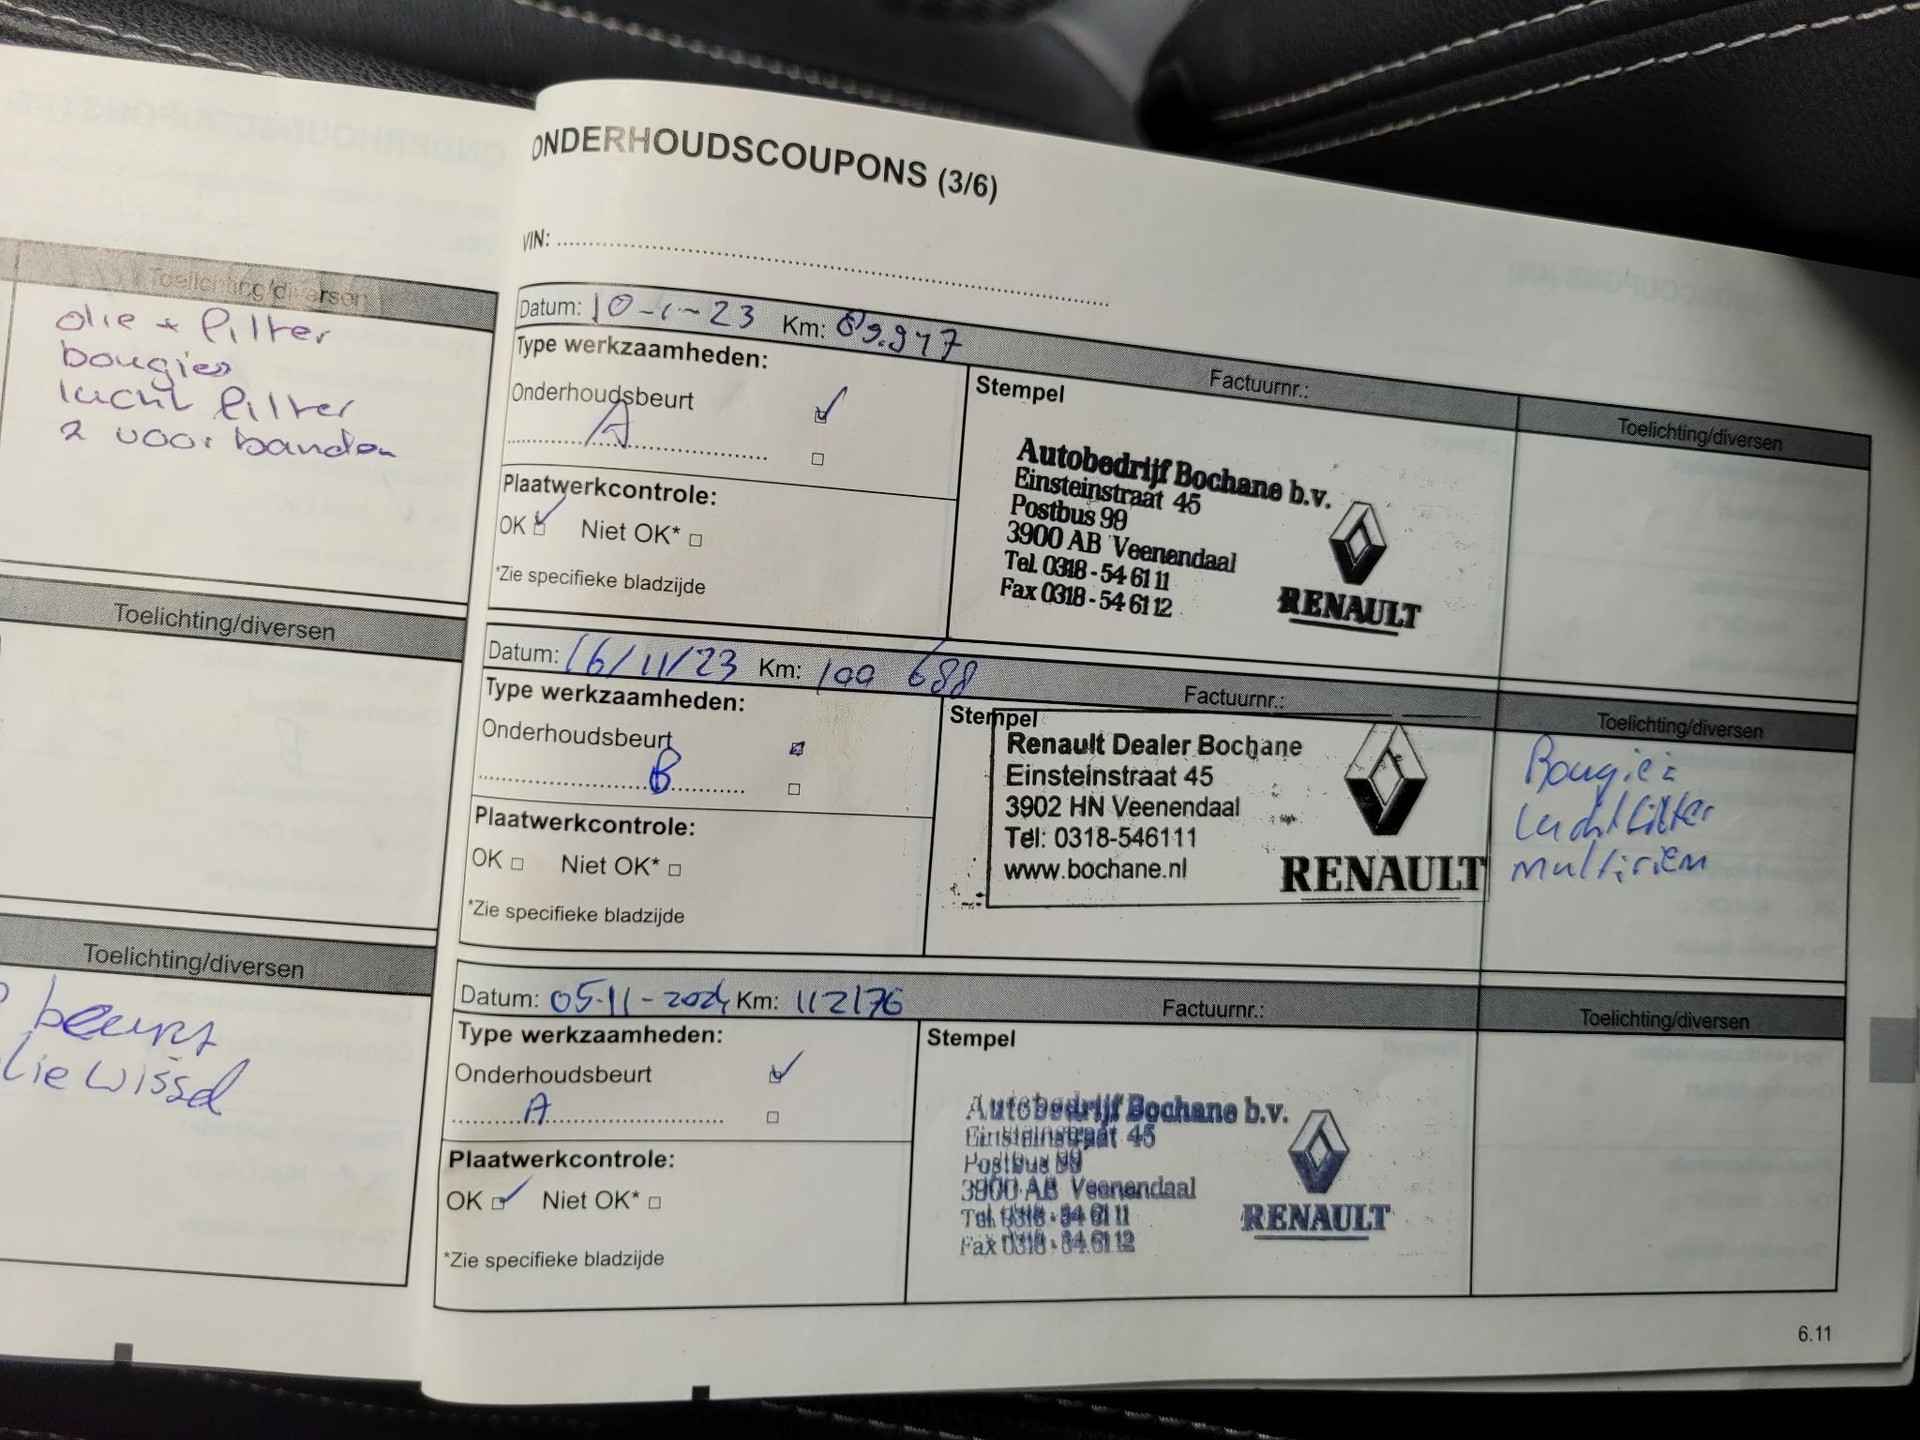 Toelichting/diversen
olie + filter
bougies
lucht filter
2 voor banden
Toelichting/diversen
Toelichting/diversen
beurt
lie wissel
ONDERHOUDSCOUPONS (3/6)
VIN:
Datum: 10-1-23 Km: 89.947
Factuurnr.:
Toelichting/diversen
Type werkzaamheden:
Onderhoudsbeurt
A
Plaatwerkcontrole:
OK Niet OK*
*Zie specifieke bladzijde
Stempel
Autobedrijf Bochane b.v.
Einsteinstraat 45
Postbus 99
3900 AB Veenendaal
Tel. 0318 - 54 61 11
Fax 0318 - 54 61 12
RENAULT
Datum: 16/11/23 Km: 100 688
Factuurnr.:
Toelichting/diversen
Type werkzaamheden:
Onderhoudsbeurt
B
Plaatwerkcontrole:
OK Niet OK*
*Zie specifieke bladzijde
Stempel
Renault Dealer Bochane
Einsteinstraat 45
3902 HN Veenendaal
Tel: 0318-546111
www.bochane.nl
RENAULT
Bougie's
luchtfilter
multiriem
Datum: 05-11-2024 Km: 112176
Factuurnr.:
Toelichting/diversen
Type werkzaamheden:
Onderhoudsbeurt
A
Plaatwerkcontrole:
OK Niet OK*
*Zie specifieke bladzijde
Stempel
Autobedrijf Bochane b.v.
Einsteinstraat 45
Postbus 99
3900 AB Veenendaal
Tel. 0318 - 54 61 11
Fax 0318 - 54 61 12
RENAULT
6.11